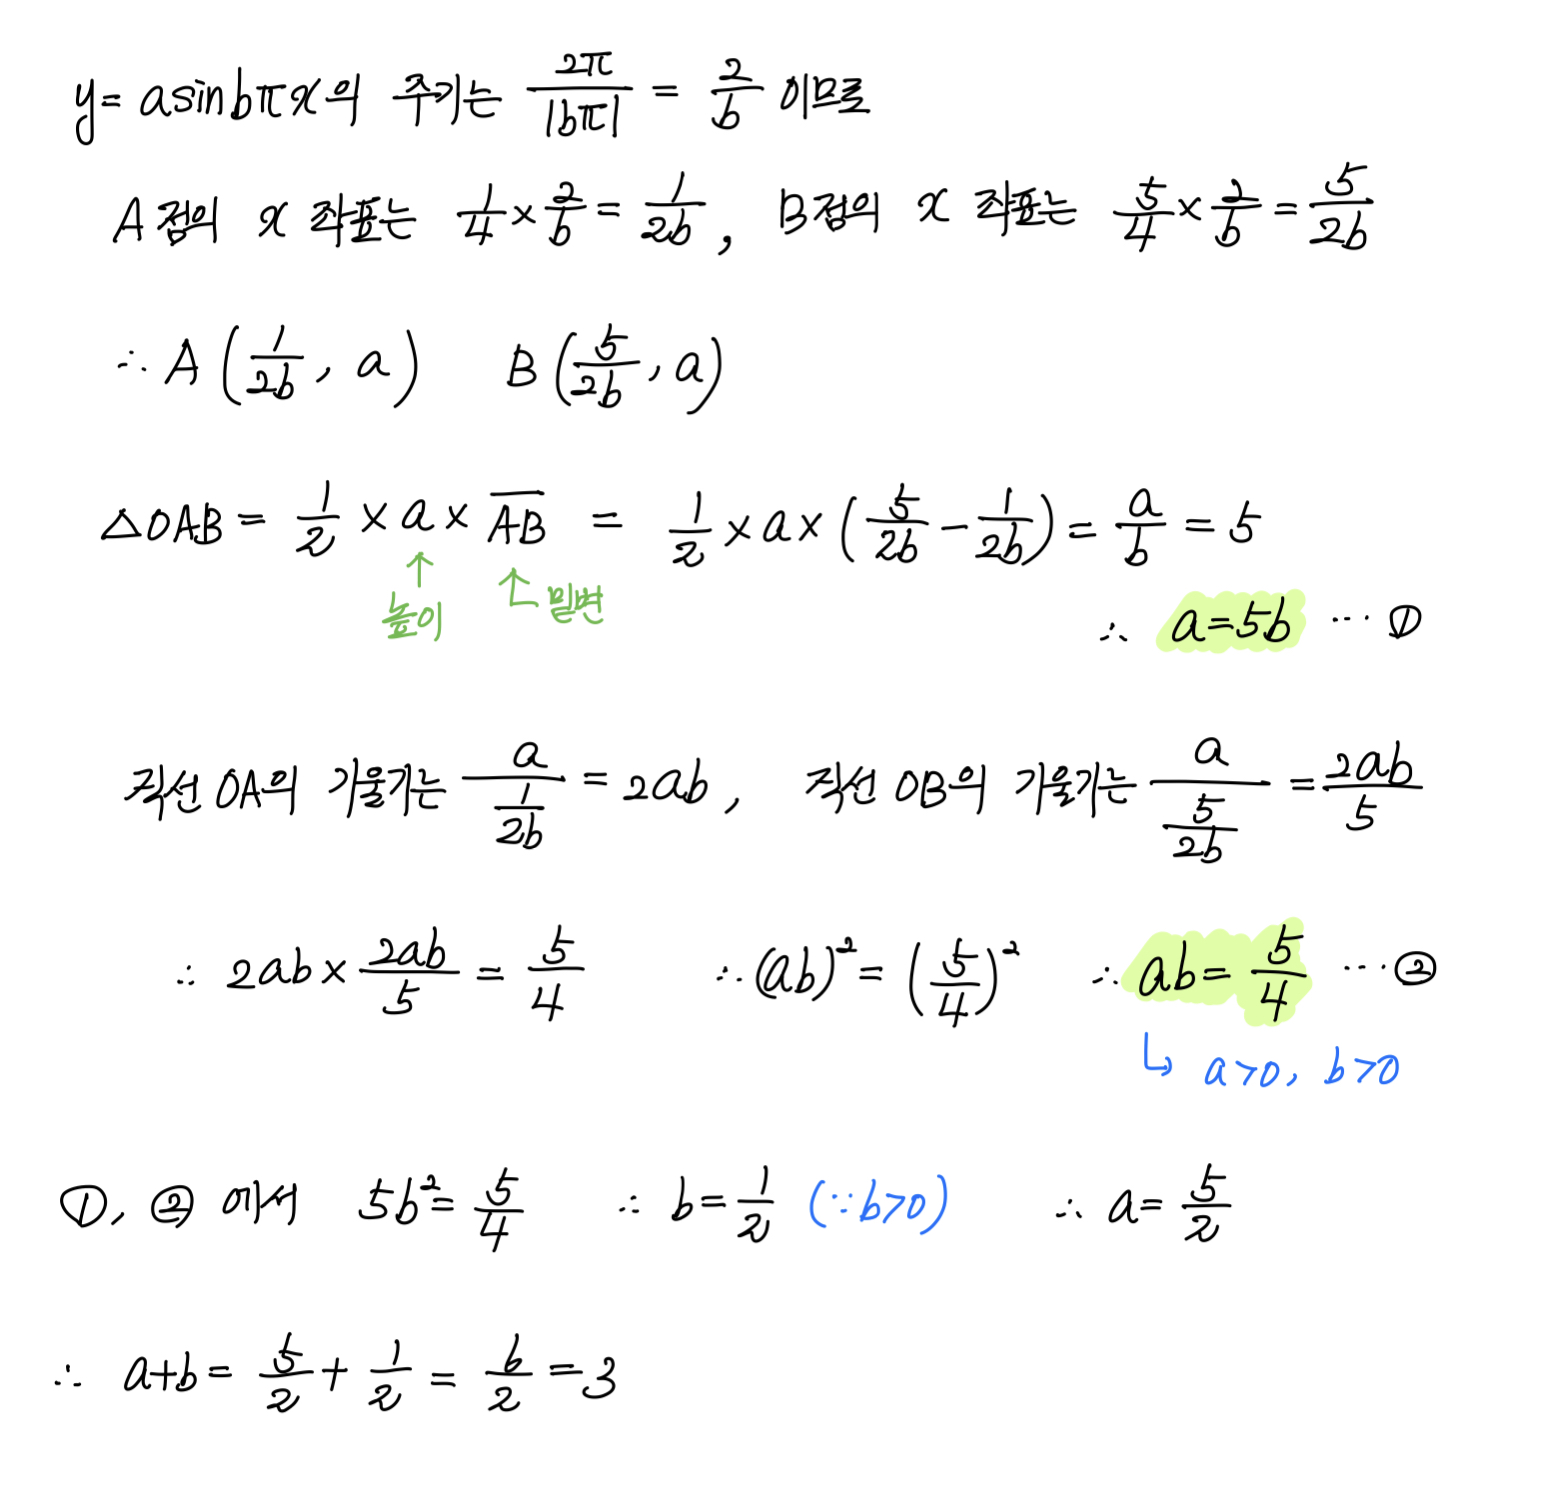 y = a sin bπx의 주기는 2π/|bπ| = 2/b 이므로
A점의 x 좌표는 1/4 × 2/b = 1/2b , B점의 x 좌표는 5/4 × 2/b = 5/2b
∴ A(1/2b , a) B(5/2b , a)
△OAB = 1/2 × a × A̅B̅ = 1/2 × a × (5/2b − 1/2b) = a/b = 5
↑ 높이 ↑ 밑변
∴ a=5b ⋯ ①
직선 OA의 기울기는 a/(1/2b) = 2ab , 직선 OB의 기울기는 a/(5/2b) = 2ab/5
∴ 2ab × 2ab/5 = 5/4 ∴ (ab)² = (5/4)² ∴ ab = 5/4 ⋯ ②
↳ a>0, b>0
①, ② 에서 5b² = 5/4 ∴ b = 1/2 (∵ b>0) ∴ a = 5/2
∴ a+b = 5/2 + 1/2 = 6/2 = 3